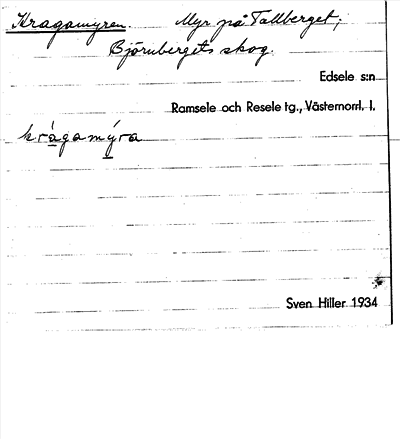 Kragamyren. Myr på Tallberget;
Björnbergets skog.
Edsele s:n
Ramsele och Resele tg., Västernorrl. l.
kràgamýra
Sven Hiller 1934